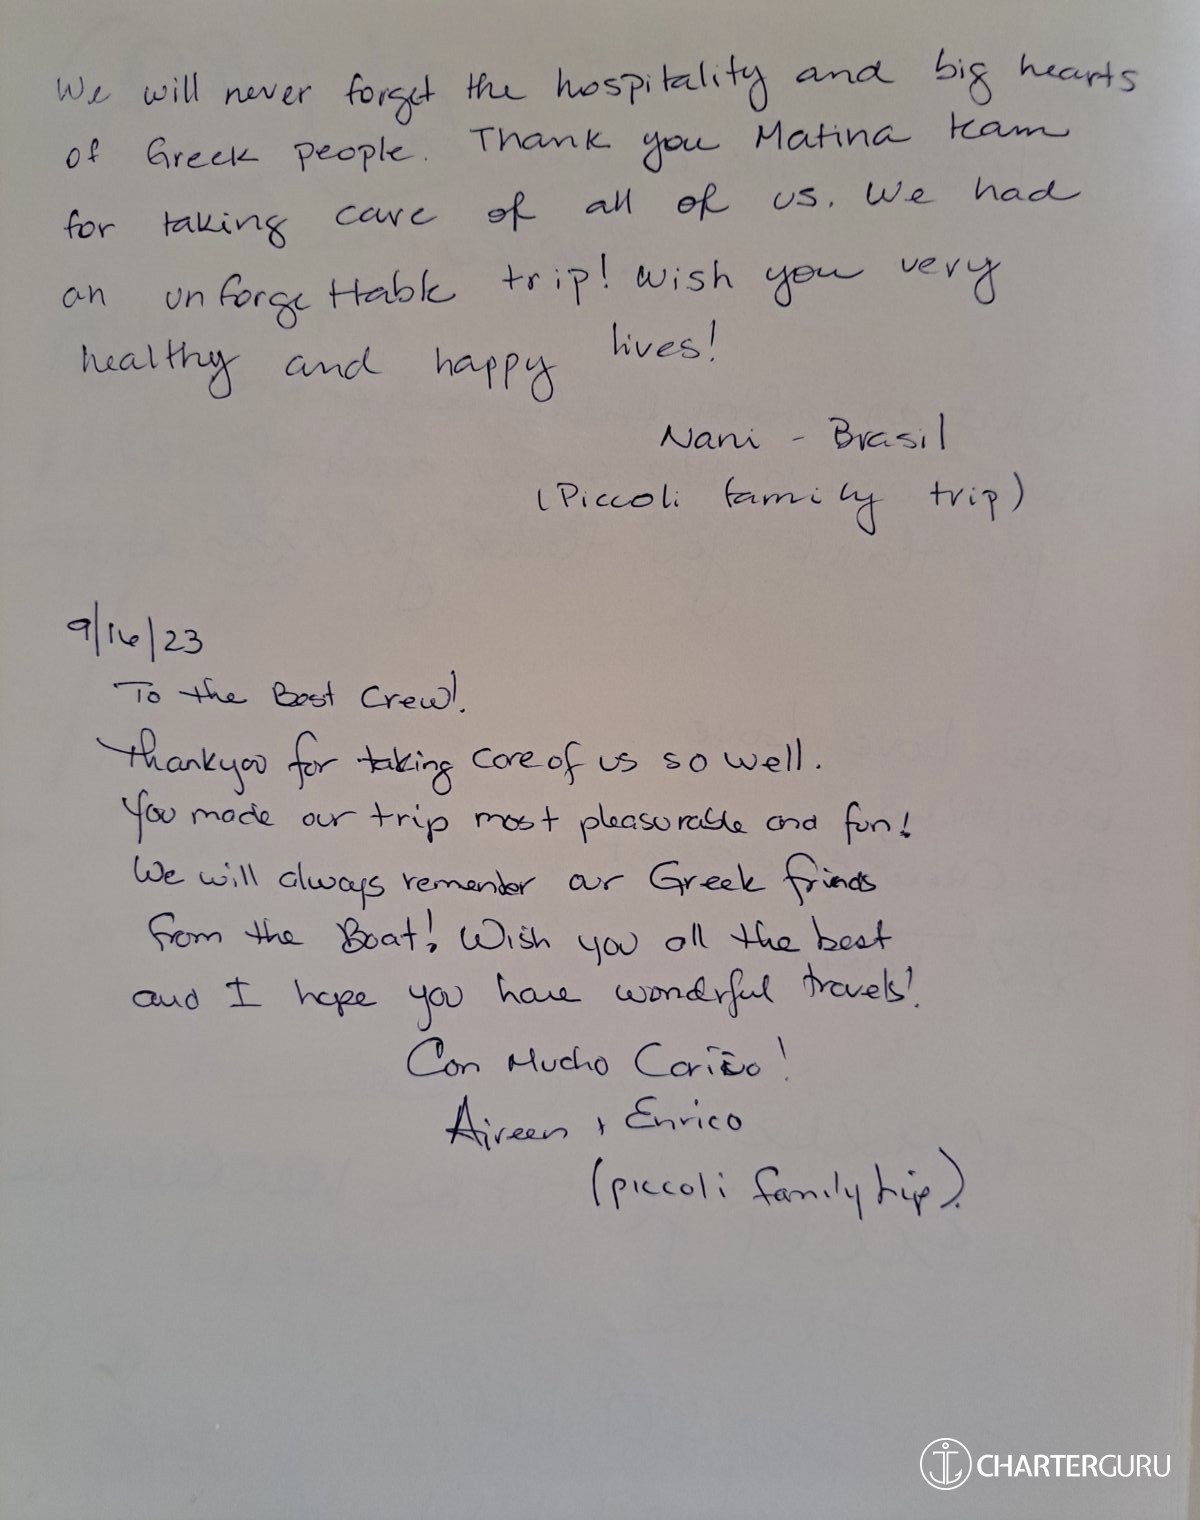 We will never forget the hospitality and big hearts
of Greek people. Thank you Matina team
for taking care of all of us. We had
an unforgettable trip! Wish you very
healthy and happy lives!
Nani - Brasil
(Piccoli family trip)
9/16/23
To the Best Crew!
Thankyou for taking care of us so well.
You made our trip most pleasurable and fun!
We will always remember our Greek friends
from the Boat! Wish you all the best
and I hope you have wonderful travels!
Con Mucho Cariño!
Aireen + Enrico
(piccoli family trip).
CHARTERGURU